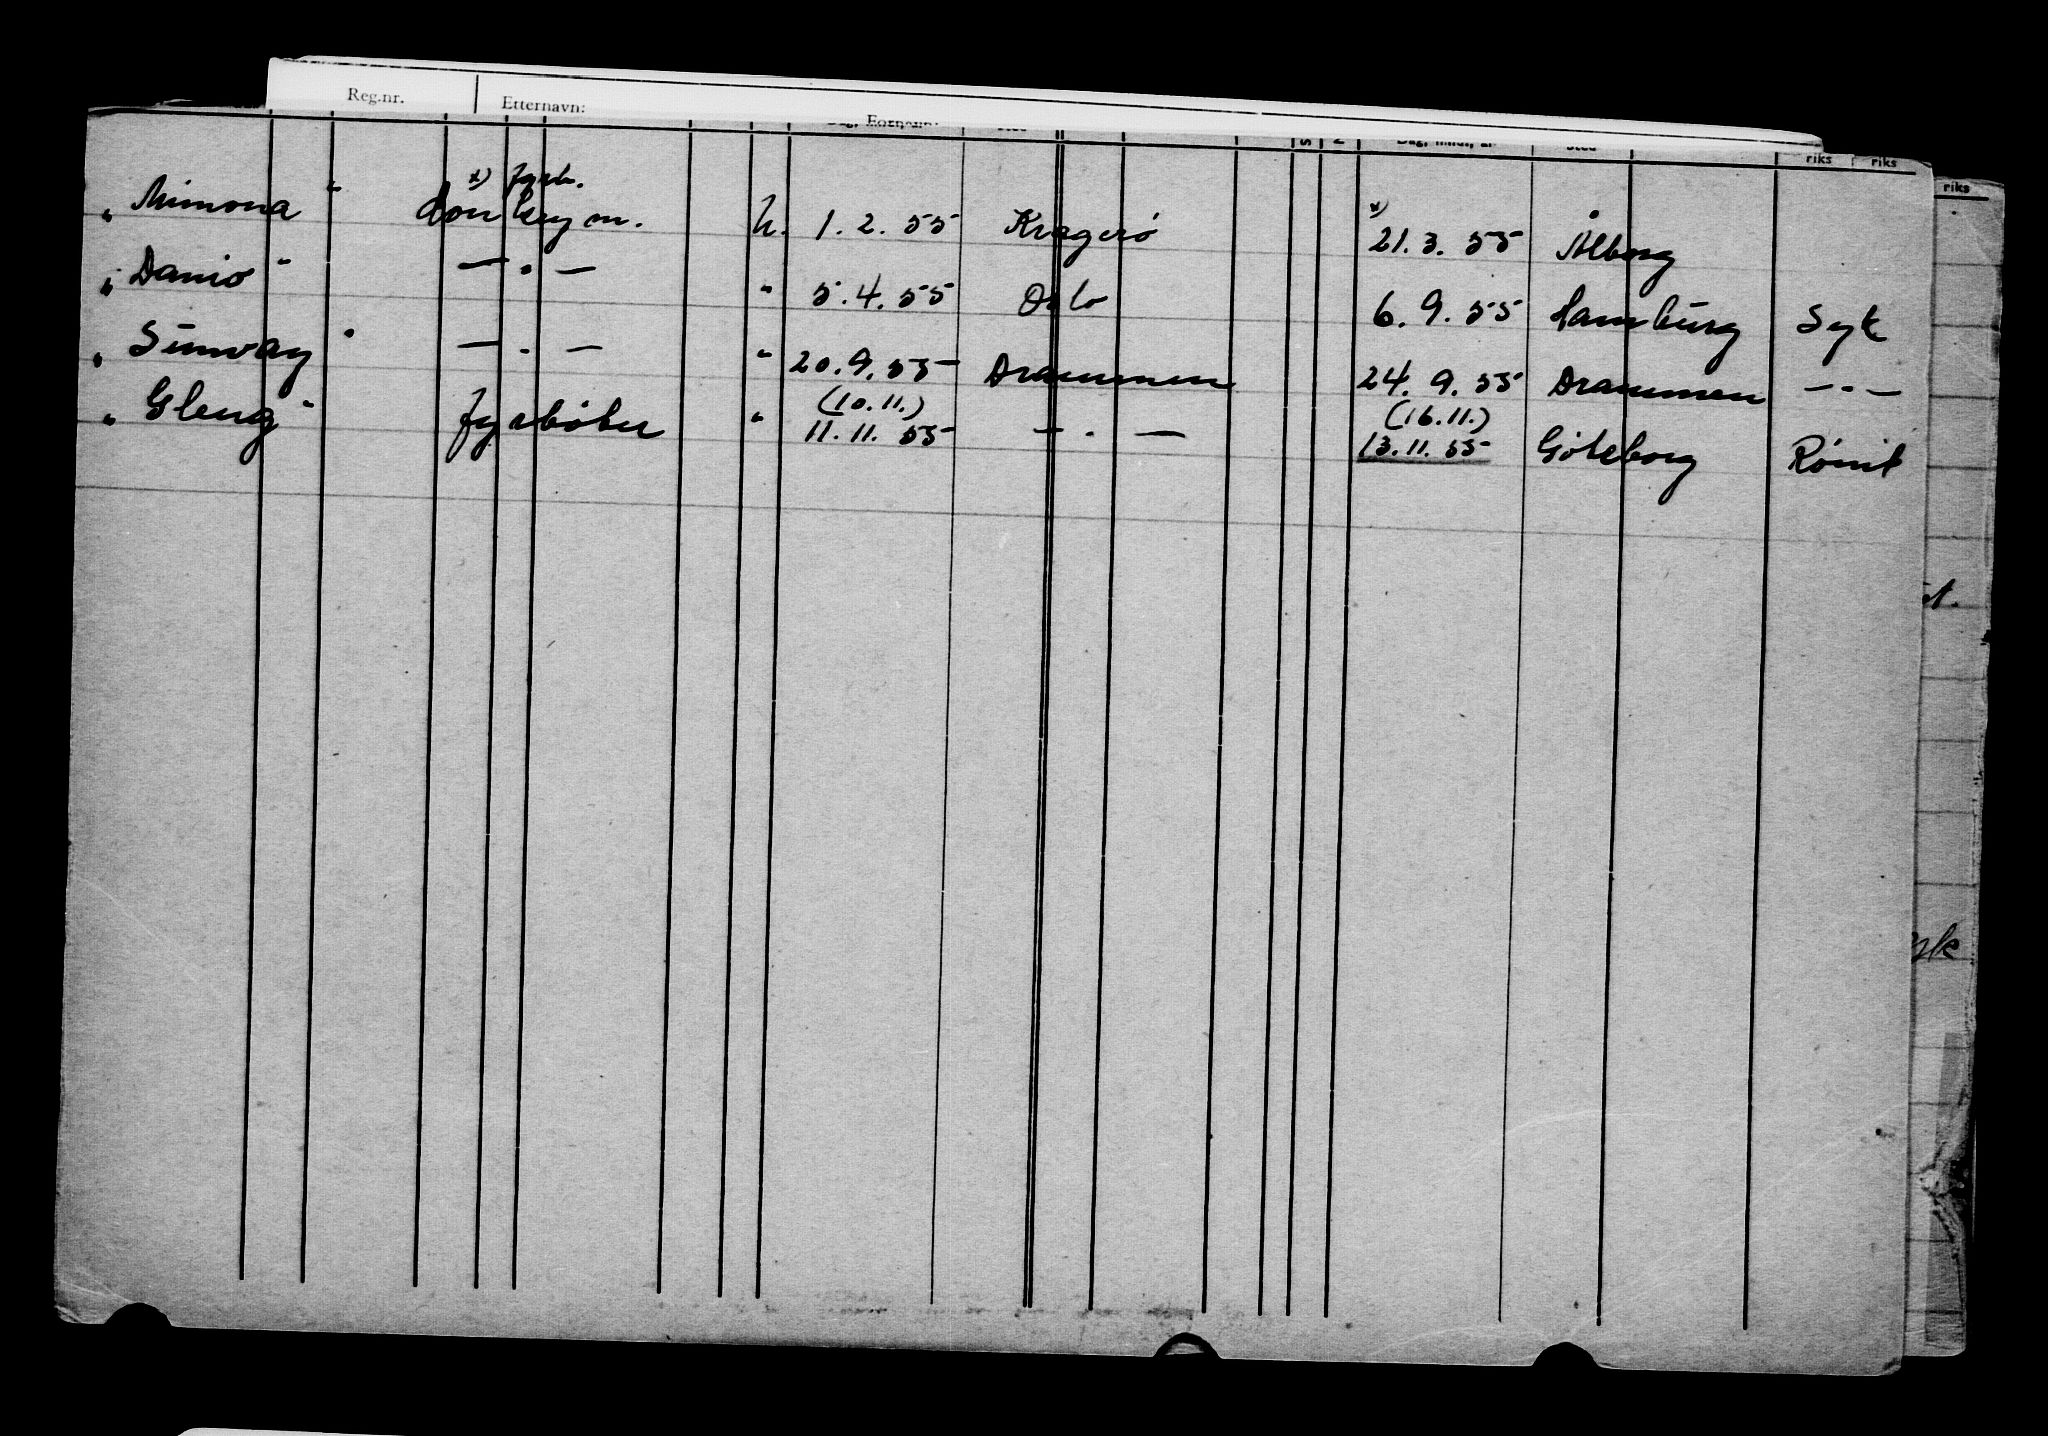 Reg.nr. Etternavn:
Fornavn:
Dag, mnd., år sted riks riks
riks
x) fyrb.
„ Mimona " donkeym. h. 1. 2. 55 Kragerø x) 21. 3. 55 Ålborg
„ Danio " — " — " 5. 4. 55 Oslo 6. 9. 55 Hamburg Syk
„ Sunway " — " — " 20. 9. 55 Drammen 24. 9. 55 Drammen — " —
(10. 11.) (16. 11.)
„ Gleng " fyrbøter " 11. 11. 55 — " — 13. 11. 55 Göteborg Rømt